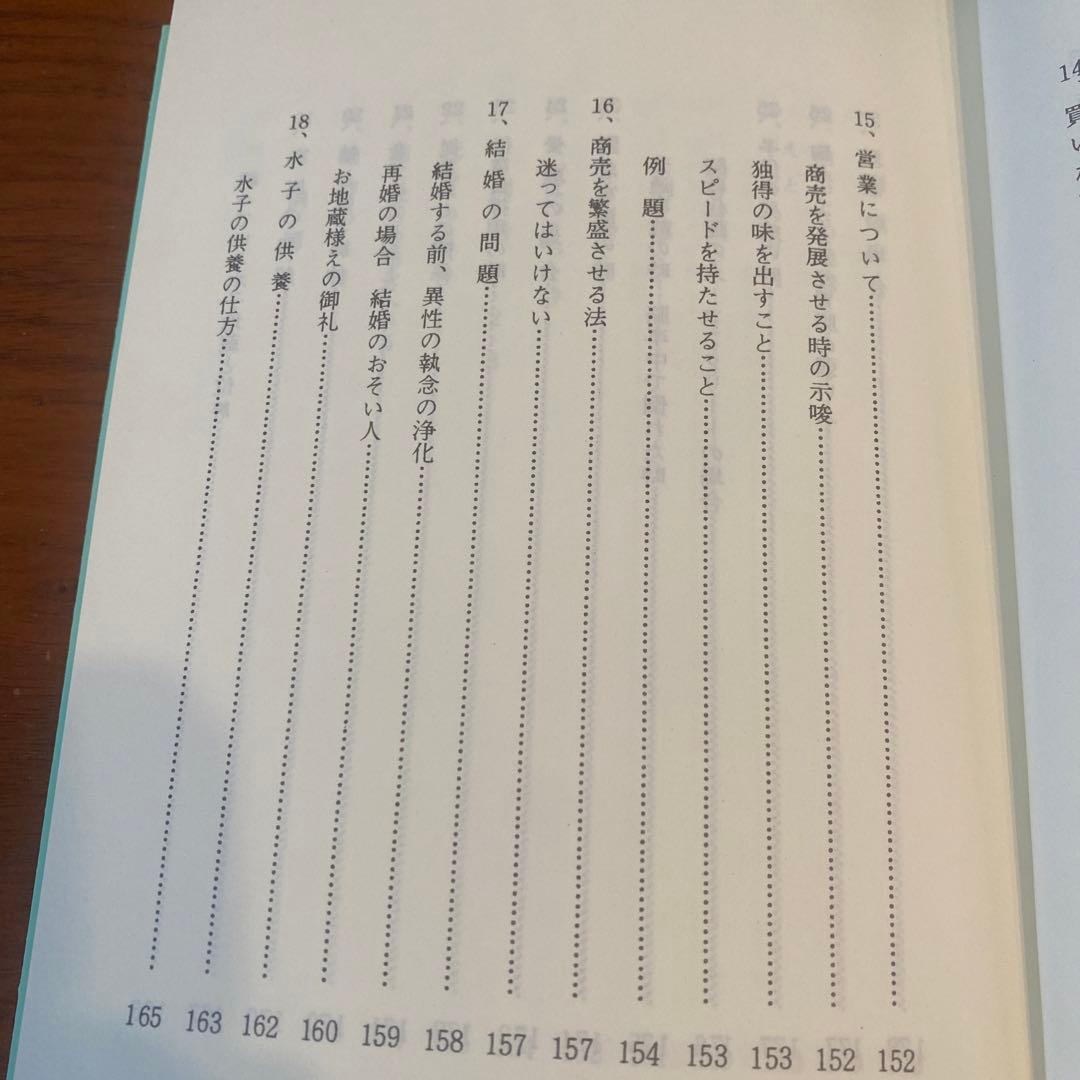 14 買い
15、営業について……152
商売を発展させる時の示唆……152
独得の味を出すこと……153
スピードを持たせること……153
例題……154
16、商売を繁盛させる法……157
迷ってはいけない……157
17、結婚の問題……158
結婚する前、異性の執念の浄化……159
再婚の場合　結婚のおそい人……160
お地蔵様えの御礼……162
18、水子の供養……163
水子の供養の仕方……165